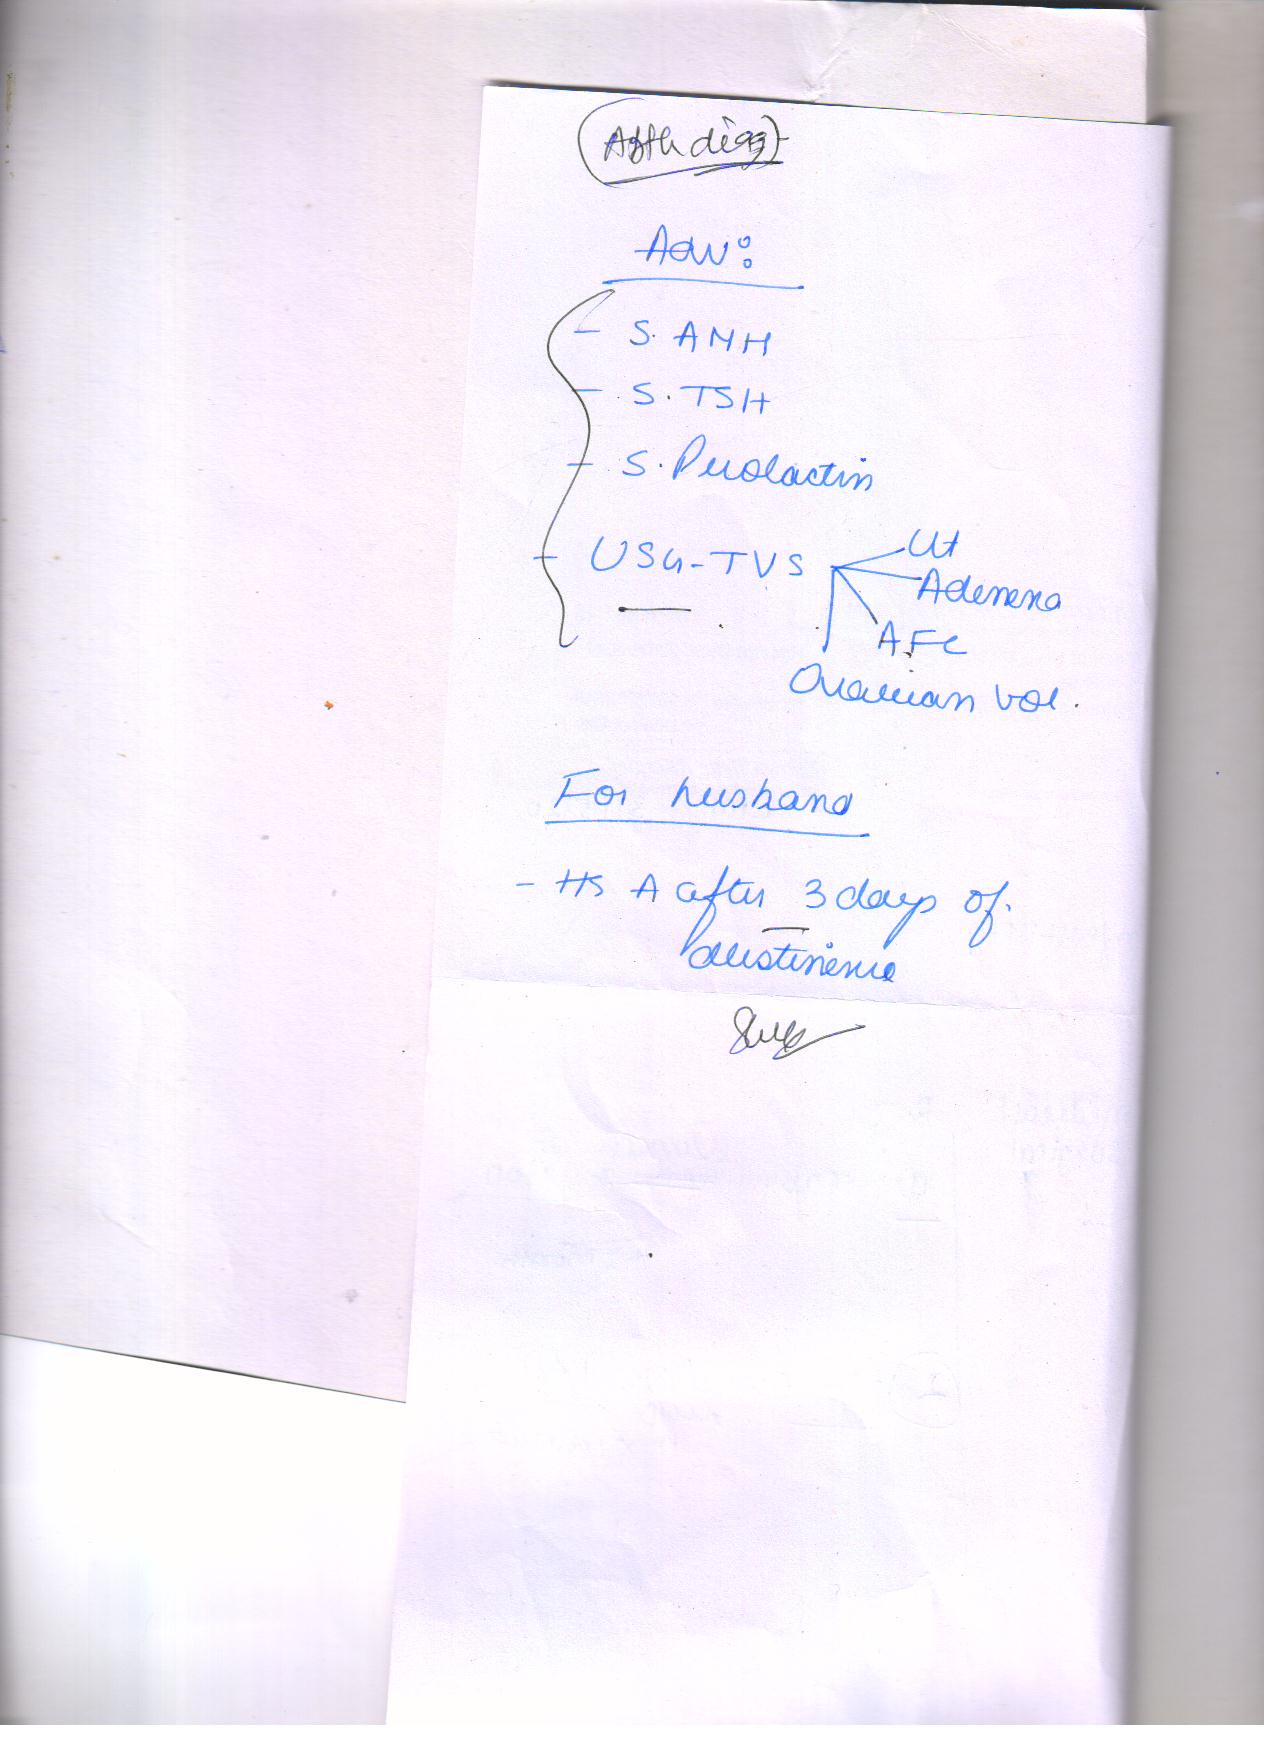 Adv:
- S. AMH
- S. TSH
- S. Prolactin
- USG-TVS
Ut
Adenexa
AFC
Ovarian vol.
For husband
- HSA after 3 days of
abstinence